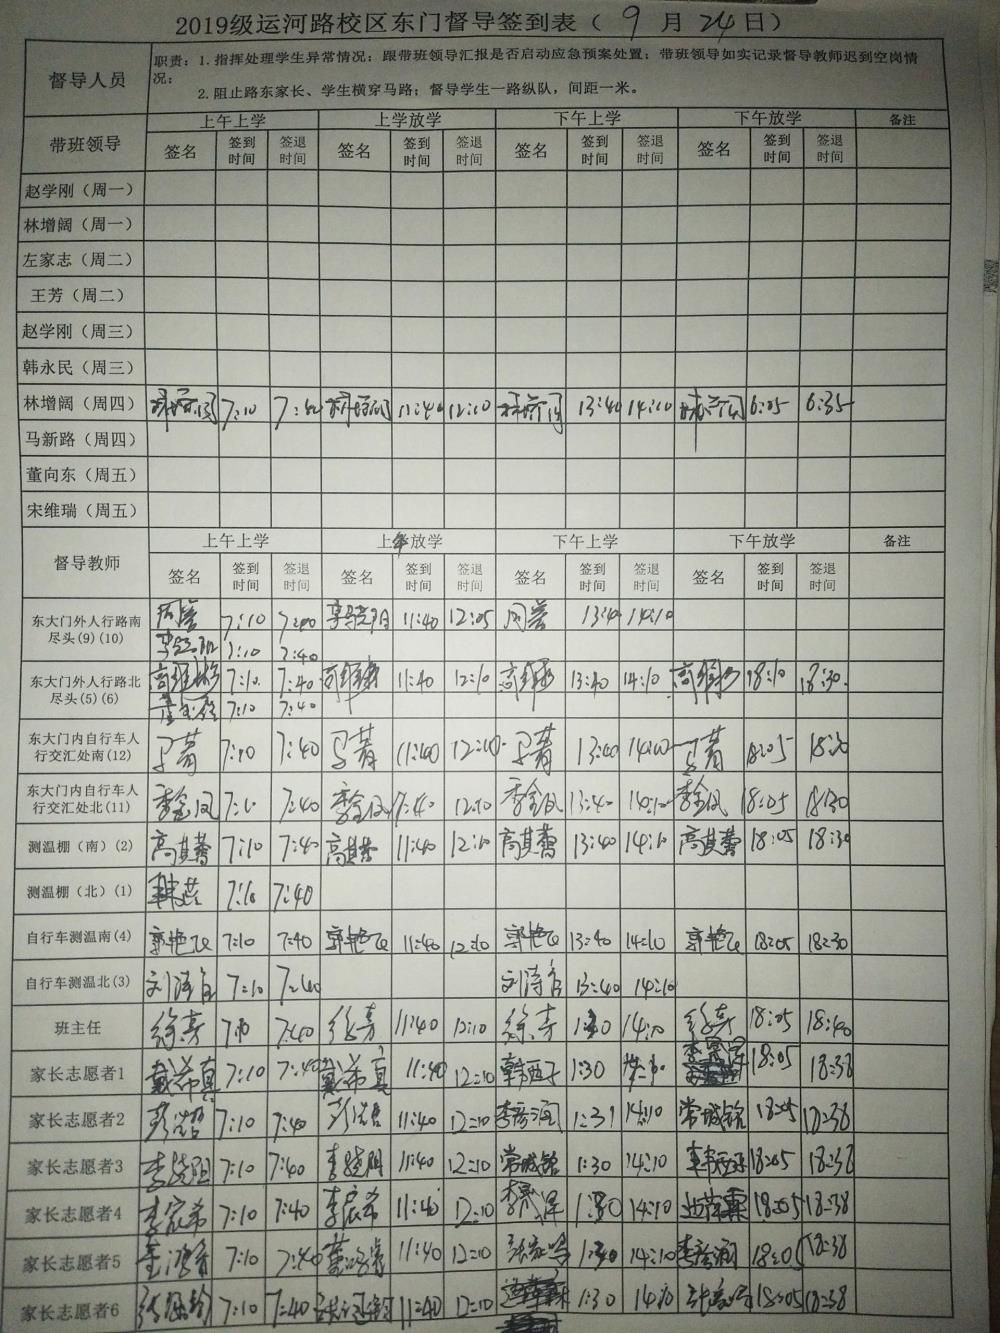 2019级运河路校区东门督导签到表（ 9 月 24日）
督导人员
职责：1. 指挥处理学生异常情况；跟带班领导汇报是否启动应急预案处置；带班领导如实记录督导教师迟到空岗情
况；
2. 阻止路东家长、学生横穿马路；督导学生一路纵队，间距一米。
带班领导 上午上学 上学放学 下午上学 下午放学 备注
签名 签到时间 签退时间 签名 签到时间 签退时间 签名 签到时间 签退时间 签名 签到时间 签退时间
赵学刚（周一）
林增阔（周一）
左家志（周二）
王芳（周二）
赵学刚（周三）
韩永民（周三）
林增阔（周四） 林增阔 7:10 7:40 林增阔 11:40 12:10 林增阔 13:40 14:10 林增阔 6:05 6:35
马新路（周四）
董向东（周五）
宋维瑞（周五）
督导教师 上午上学 上午放学 下午上学 下午放学 备注
签名 签到时间 签退时间 签名 签到时间 签退时间 签名 签到时间 签退时间 签名 签到时间 签退时间
东大门外人行路南尽头(9)(10) 7:10 7:40 11:40 12:05 13:40 14:10
7:10 7:40
东大门外人行路北尽头(5)(6) 7:10 7:40 11:40 12:10 13:40 14:10 18:10 18:30
7:10 7:40
东大门内自行车人行交汇处南(12) 7:10 7:40 11:40 12:10 13:40 14:10 18:05 18:30
东大门内自行车人行交汇处北(11) 李金凤 7:10 7:40 李金凤 12:10 李金凤 13:40 14:10 李金凤 18:05 18:30
测温棚（南）(2) 高其蕾 7:10 7:40 高其蕾 11:40 12:10 高其蕾 13:40 14:10 高其蕾 18:05 18:30
测温棚（北）(1) 7:10 7:40
自行车测温南(4) 郭艳飞 7:10 7:40 郭艳飞 11:40 12:10 郭艳飞 13:40 14:10 郭艳飞 18:05 18:30
自行车测温北(3) 7:10 7:40 13:40 14:10
班主任 徐芳 7:10 7:40 徐芳 11:40 12:10 徐芳 1:30 14:10 徐芳 18:05 18:40
家长志愿者1 戴希真 7:10 7:40 戴希真 11:40 12:10 韩西子 1:30 18:05 18:38
家长志愿者2 7:10 7:40 11:40 12:10 李彦润 1:31 14:10 常城铭 18:05 18:38
家长志愿者3 李晓阳 7:10 7:40 李晓阳 11:40 12:10 常城铭 1:30 14:10 韩西子 18:05 18:38
家长志愿者4 李宸希 7:10 7:40 李宸希 11:40 12:10 1:30 14:10 18:05 18:38
家长志愿者5 7:10 7:40 11:40 12:10 1:30 14:10 李彦润 18:05 18:38
家长志愿者6 7:10 7:40 11:40 12:10 1:30 14:10 18:05 18:38